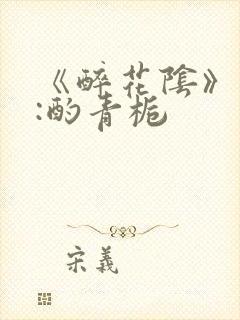 《醉花陰》
:酌青栀
宋義